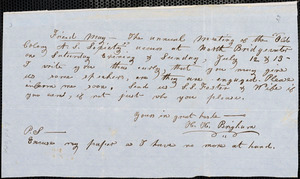 Friend May — The annual Meeting of the "Old
Colony A. S. Society" occurs at North Bridgewater
on Saturday evening & Sunday, July 12 & 13 —
I write you thus early, that you may give
us some speakers, ere they are engaged. Please
inform me soon. Send us S. S. Foster & wife if
you can, if not just who you please.
Yours in great haste —
H. H. Brigham
P.S —
Excuse my paper as I have no more at hand.